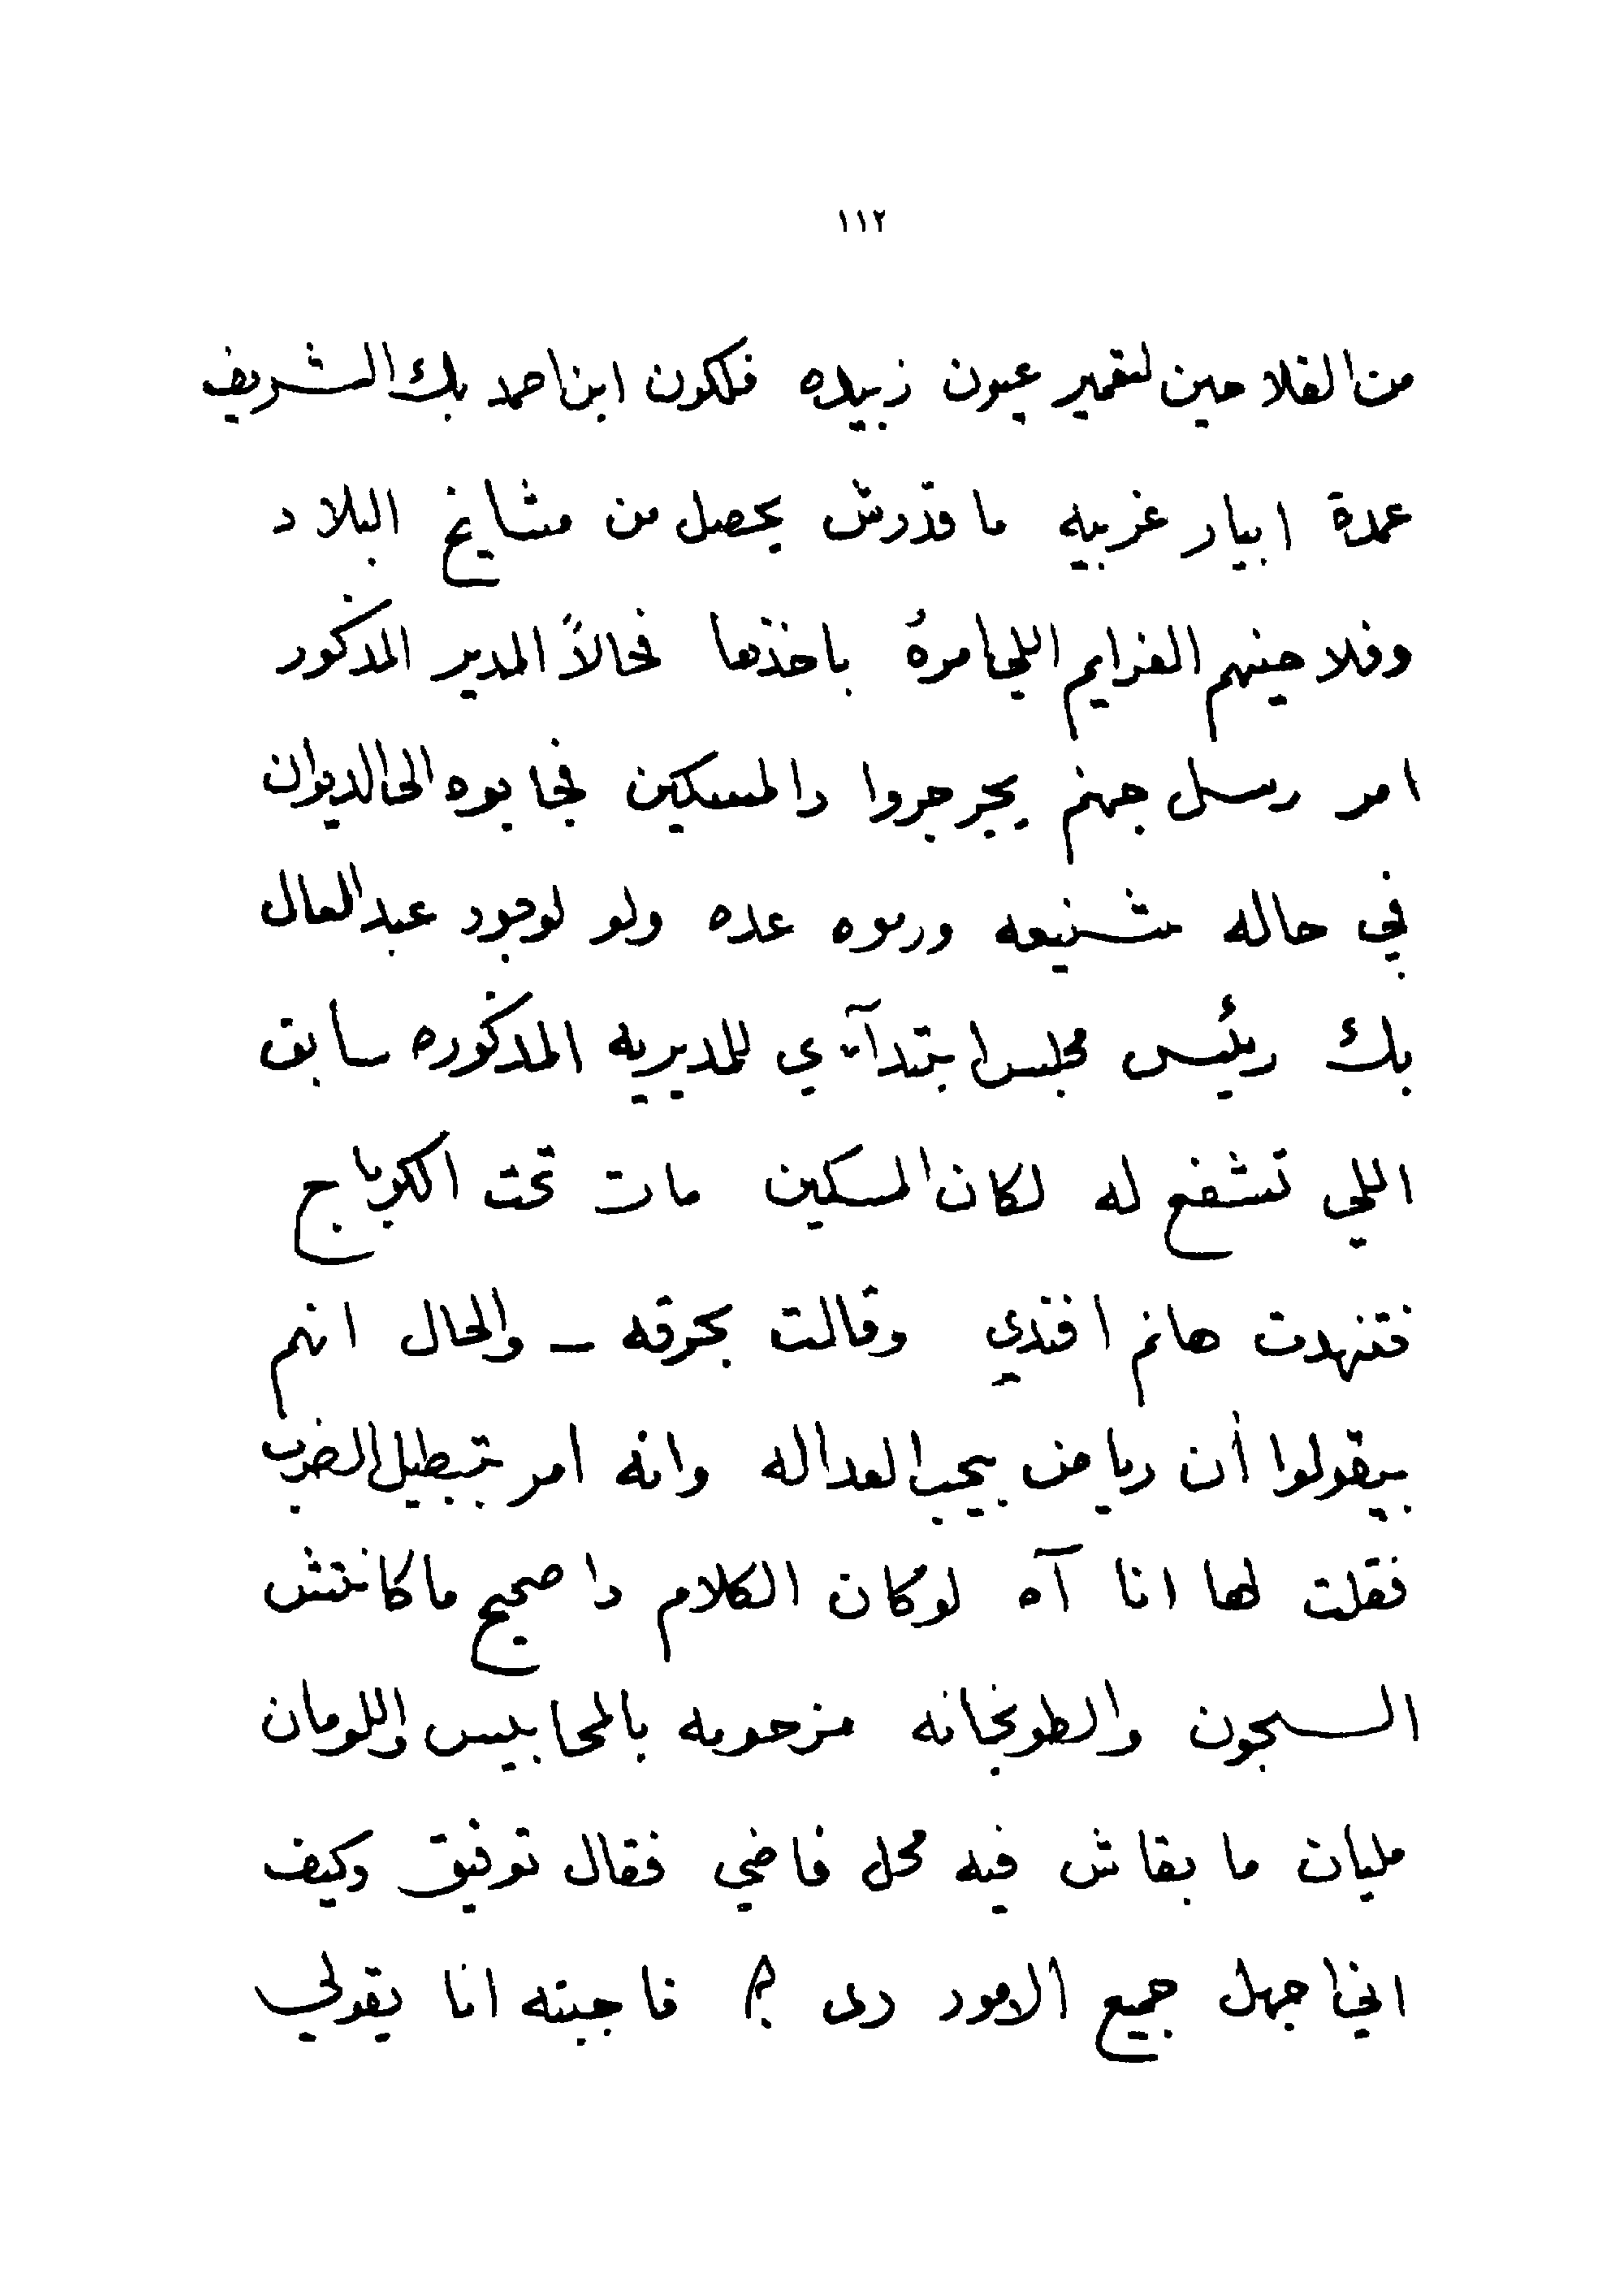 ١١٢
من الفلاحين لتعمير عيون زبيده فلكون ابن احمد بك الشريف
عمدة ابيار غربيه ما قدرش يحصل من مشايخ البلاد
وفلاحينهم الغرايم اللي امره باخذها فحالاً المدير المذكور
امر رسل جهنم يجرجروا دا المسكين فجابوه الى الديوان
في حاله شنيعه ورموه عده ولو لوجود عبد العال
بك رئيس مجلس ابتدآئي للمديريه المذكوره سابق
اللي تشفع له لكان المسكين مات تحت الكرباج
فتنهدت هانم افندي وقالت بحرقه ــ والحال انهم
بيقولوا أن رياض بيحب العداله وانه امر بتبطيل الضرب
فقلت لها انا آه لو كان الكلام دا صحيح ما كانتش
السجون والطوبخانه مزحومه بالمحابيس واللومان
مليان ما بقاش فيه محل فاضي فقال توفيق وكيف
اني اجهل جميع الامور دى ؟ فاجبته انا يقولي